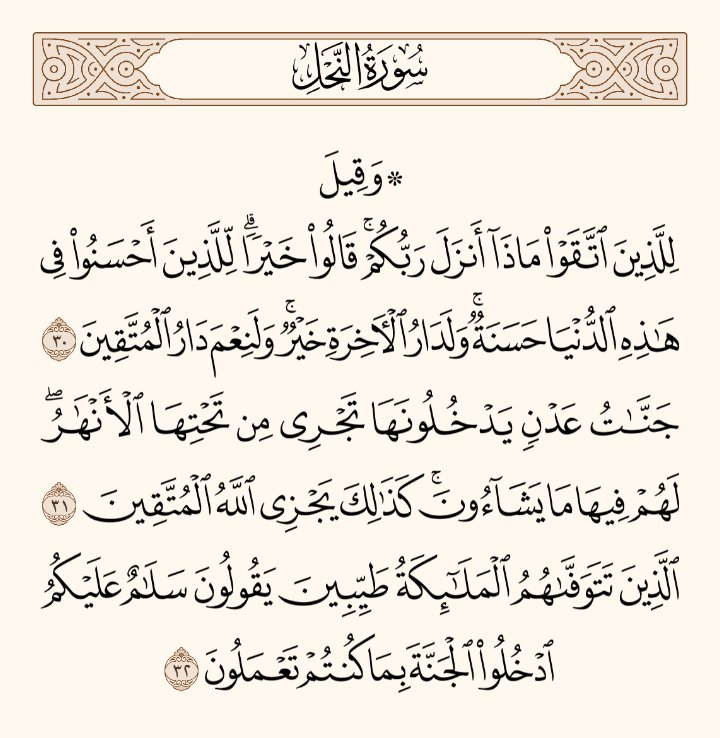 سُورَةُ النَّحْلِ
* وَقِيلَ
لِلَّذِينَ ٱتَّقَوْا۟ مَاذَآ أَنزَلَ رَبُّكُمْ ۚ قَالُوا۟ خَيْرًا ۗ لِّلَّذِينَ أَحْسَنُوا۟ فِى
هَـٰذِهِ ٱلدُّنْيَا حَسَنَةٌ ۚ وَلَدَارُ ٱلْـَٔاخِرَةِ خَيْرٌ ۚ وَلَنِعْمَ دَارُ ٱلْمُتَّقِينَ ٣٠
جَنَّـٰتُ عَدْنٍ يَدْخُلُونَهَا تَجْرِى مِن تَحْتِهَا ٱلْأَنْهَـٰرُ ۖ
لَهُمْ فِيهَا مَا يَشَآءُونَ ۚ كَذَٰلِكَ يَجْزِى ٱللَّهُ ٱلْمُتَّقِينَ ٣١
ٱلَّذِينَ تَتَوَفَّىٰهُمُ ٱلْمَلَـٰٓئِكَةُ طَيِّبِينَ يَقُولُونَ سَلَـٰمٌ عَلَيْكُمُ
ٱدْخُلُوا۟ ٱلْجَنَّةَ بِمَا كُنتُمْ تَعْمَلُونَ ٣٢